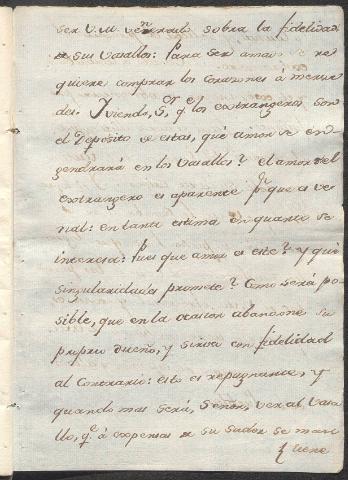 ser V.M. venerado sobra la fidelidad
de sus vasallos: Para ser amado se re
quiere comprar los Corazones á merce
des. Y viendo, S.or q.e los extrangeros son
el Deposito de estas, qué amor se en
gendrará en los Vasallos? el amor del
extrangero es aparente p.r que es ve
nal: en tanto estima en quanto se
interesa: Pues que amor es este? y qué
singularidades promete? Como será po
sible, que en la ocasion abandone su
proprio dueño, y sirva con fidelidad
al Contrario: esto es repugnante, y
quando mas será, Señor, ver al Vasa
llo, q.e á expensas de su sudor se man
tiene